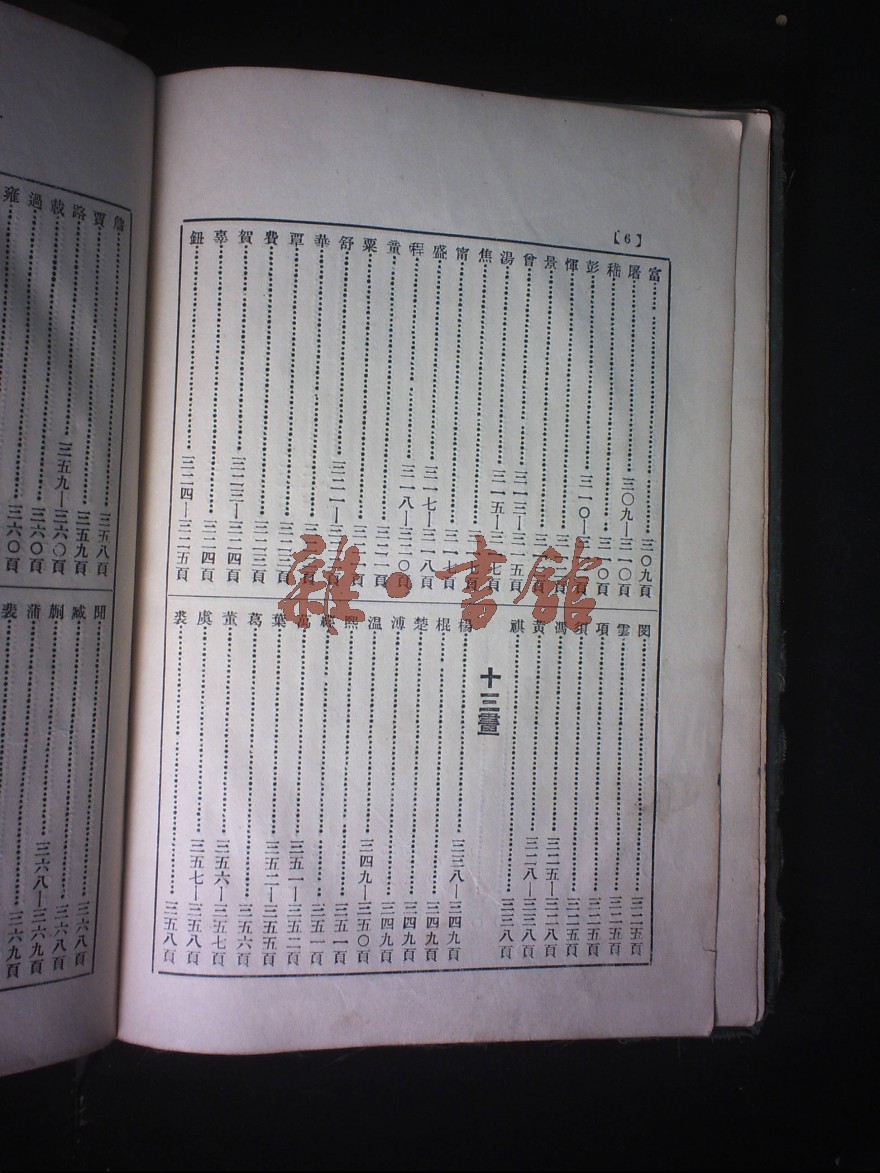 【6】
富 三〇九頁
屠 三〇九—三一〇頁
嵇 三一〇頁
彭 三一〇—
惲
景
曾 三一三—三一五頁
湯 三一五—三一七頁
焦 七頁
甯 三一七頁
盛 三一七—三一八頁
程 三一八—三二〇頁
三二一頁
粟 一頁
舒 三二一—
華
覃
費 三二三頁
賀 三二三—三二四頁
辜 三二四頁
鈕 三二四—三二五頁
閔 三二五頁
雲 三二五頁
項 三二五頁
須 三二五頁
馮 三二五—三二八頁
黃 三二八—三三八頁
祺 三三八頁
十三畫
楊 三三八—三四九頁
棍 三四九頁
楚 三四九頁
溥 三四九頁
温 三四九—三五〇頁
熙 三五一頁
三五一頁
萬 三五一—三五二頁
葉 三五二—三五五頁
葛 三五六頁
董 三五六—三五七頁
虞 三五七—三五八頁
裘 三五八頁
詹 三五八頁
賈 三五九頁
路 三五九—三六〇頁
載 三六〇頁
過 三六〇頁
雍
聞 三六八頁
臧 三六八頁
蒯 三六八—三六九頁
蒲 三六九頁
裴
雜·書館